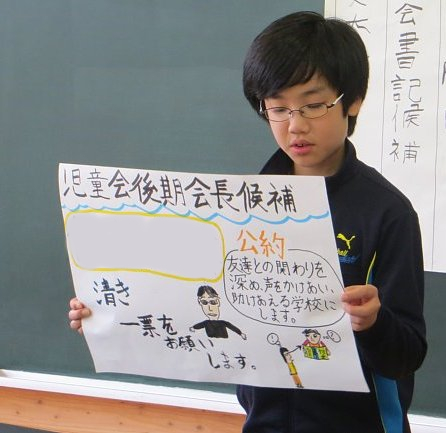 児童会後期会長候補
公約
友達との関わりを
深め、声をかけあい、
助けあえる学校に
します。
清き
一票を
お願い
します。
会書記候補